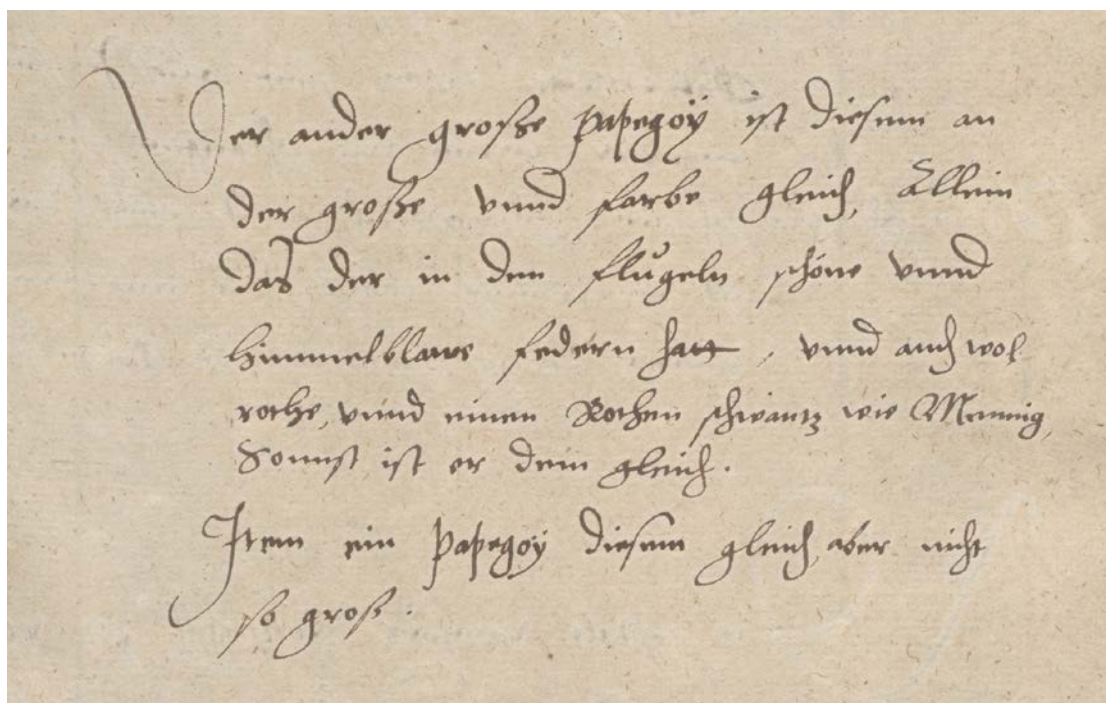 Der ander große papegoÿ ist diesem an
der große vnnd farbe gleich, Allein
das der in den flůgeln schöne vnnd
himmelblawe federn hatt, vnnd auch wol
rothe, vnnd einen Rothen schwantz wie Mennig,
Sonnst ist er dem gleich.
Item ein papegoÿ diesem gleich, aber nicht
so groß.